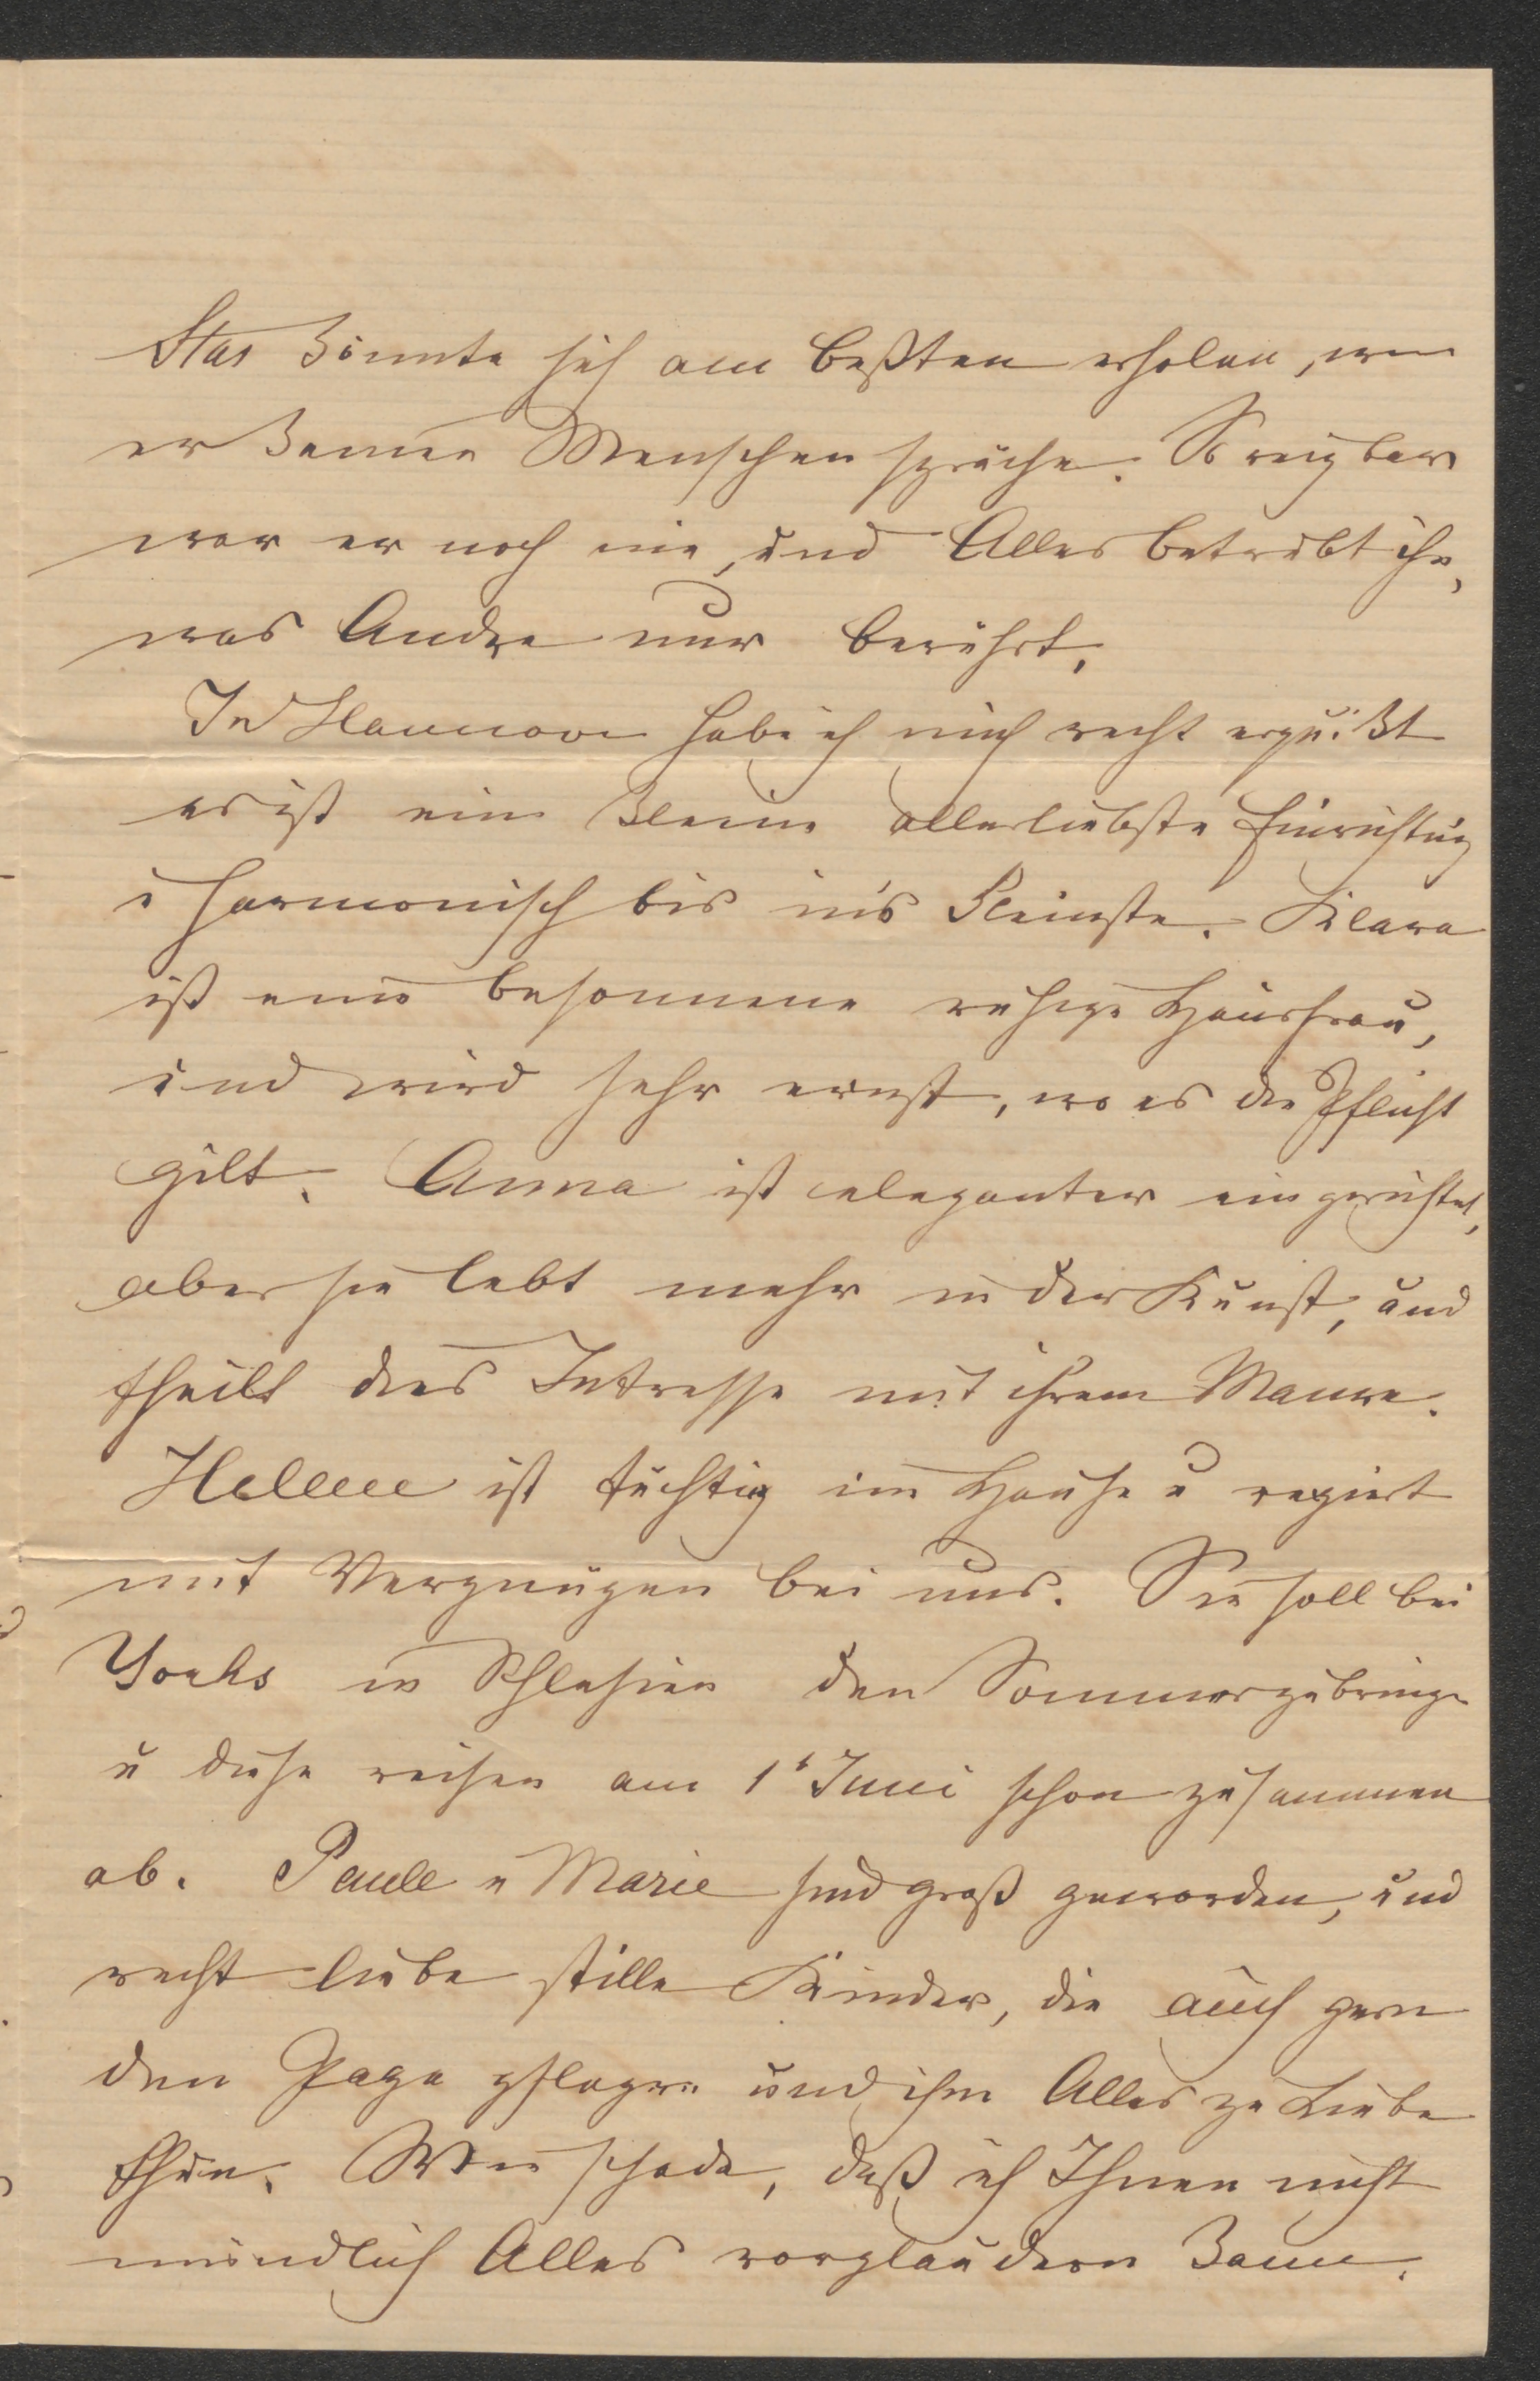 Stas könnte sich am beßten erholen, wen
er keinen Menschen spräche. So reizbar
war er noch nie, und Alles betrübt ihn,
was Andre nur berührt.
In Hannover habe ich mich recht erquickt
es ist eine kleine allerliebste Einrichtung
u harmonisch bis in's Kleinste. Klara
ist eine besonnene ruhige Hausfrau,
und wird sehr ernst, wo es die Pflicht
gilt. Anna ist eleganter eingerichtet,
aber sie lebt mehr in der Kunst, und
theilt dies Intresse mit ihrem Manne.
Helene ist tüchtig im Hause u regiert
mit Vergnügen bei uns. Sie soll bei
Yorks in Schlesien den Sommer zubringen
u diese reisen am 1t Juni schon zusammen
ab. Paule u Marie sind groß geworden, und
recht liebe stille Kinder, die auch gern
den Papa pflegen und ihm Alles zu Liebe
thun. Wie schade, daß ich Ihnen nicht
mündlich Alles vorplaudern kann.